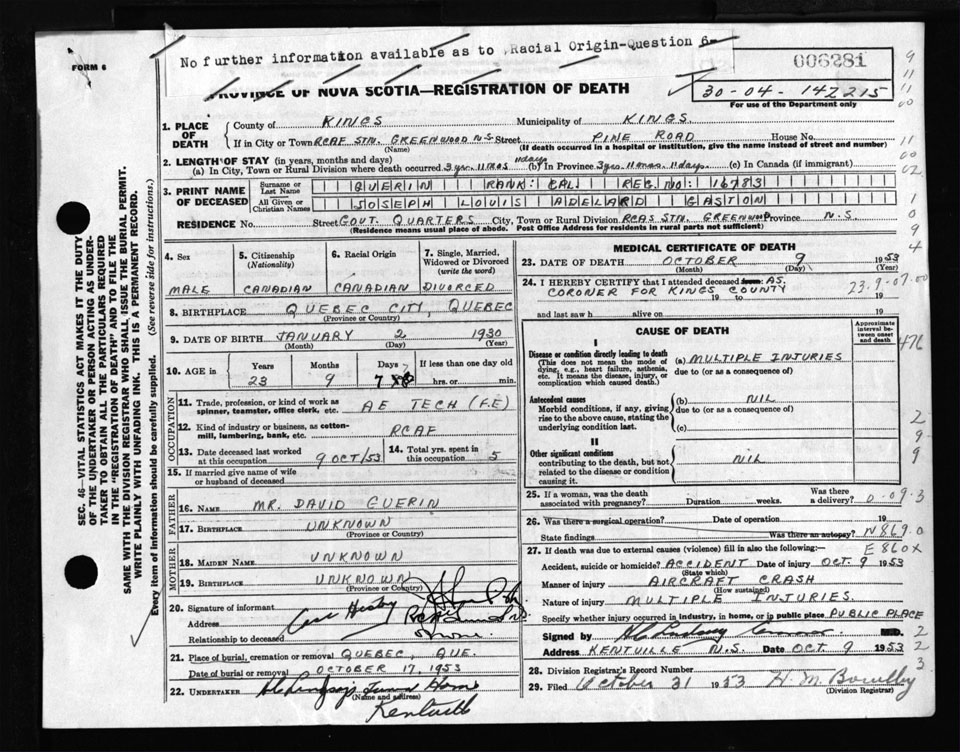 No further information available as to Racial Origin-Question 6-
FORM 6
006281
30-04-142215
For use of the Department only
PROVINCE OF NOVA SCOTIA—REGISTRATION OF DEATH
SEC. 46—VITAL STATISTICS ACT MAKES IT THE DUTY
OF THE UNDERTAKER OR PERSON ACTING AS UNDER-
TAKER TO OBTAIN ALL THE PARTICULARS REQUIRED
IN THE "REGISTRATION OF DEATH" AND TO FILE THE
SAME WITH THE DIVISION REGISTRAR WHO SHALL ISSUE THE BURIAL PERMIT.
WRITE PLAINLY WITH UNFADING INK. THIS IS A PERMANENT RECORD.
Every item of information should be carefully supplied. (See reverse side for instructions.)
1. PLACE OF DEATH
County of KINGS Municipality of KINGS.
If in City or Town RCAF STN. GREENWOOD N.S. Street PINE ROAD House No.
(Name) (If death occurred in a hospital or institution, give the name instead of street and number)
2. LENGTH OF STAY (in years, months and days)
(a) In City, Town or Rural Division where death occurred 3 yrs. 11 mos 11 days (b) In Province 3 yrs. 11 mos. 11 days. (c) In Canada (if immigrant)
3. PRINT NAME OF DECEASED
Surname or Last Name GUERIN RANK: CAL. REG. NO: 16783
All Given or Christian Names JOSEPH LOUIS ADELARD GASTON
RESIDENCE No. Street GOVT. QUARTERS City, Town or Rural Division RCAS STN. GREENWOOD Province N.S.
(Residence means usual place of abode. Post Office Address for residents in rural parts not sufficient)
4. Sex
MALE
5. Citizenship
(Nationality)
CANADIAN
6. Racial Origin
CANADIAN
7. Single, Married,
Widowed or Divorced
(write the word)
DIVORCED
8. BIRTHPLACE QUEBEC CITY, QUEBEC
(Province or Country)
9. DATE OF BIRTH JANUARY 2 1930
(Month) (Day) (Year)
10. AGE in Years Months Days If less than one day old
23 9 7 hrs. or min.
OCCUPATION
11. Trade, profession, or kind of work as
spinner, teamster, office clerk, etc. AE TECH (F.E)
12. Kind of industry or business, as cotton-
mill, lumbering, bank, etc. RCAF
13. Date deceased last worked
at this occupation 9 OCT/53
14. Total yrs. spent in
this occupation 5
15. If married give name of wife
or husband of deceased
FATHER
16. NAME MR. DAVID GUERIN
17. BIRTHPLACE UNKNOWN
MOTHER
18. MAIDEN NAME UNKNOWN
19. BIRTHPLACE UNKNOWN
(Province or Country)
20. Signature of informant
Address
Relationship to deceased
21. Place of burial, cremation or removal QUEBEC, QUE.
Date of burial or removal OCTOBER 17, 1953
22. UNDERTAKER
(Name and address)
Kentville
MEDICAL CERTIFICATE OF DEATH
23. DATE OF DEATH OCTOBER 9 1953
(Month) (Day) (Year)
24. I HEREBY CERTIFY that I attended deceased from AS,
CORONER FOR KINGS COUNTY
19 to 19
23.9-07.00
and last saw h alive on 19
CAUSE OF DEATH
Approximate
interval be-
tween onset
and death
I
Disease or condition directly leading to death
(This does not mean the mode of
dying, e.g., heart failure, asthenia,
etc. It means the disease, injury, or
complication which caused death.)
(a) MULTIPLE INJURIES
due to (or as a consequence of)
Antecedent causes
Morbid conditions, if any, giving
rise to the above cause, stating the
underlying condition last.
(b) NIL
due to (or as a consequence of)
(c)
II
Other significant conditions
contributing to the death, but not
related to the disease or condition
causing it.
NIL
25. If a woman, was the death
associated with pregnancy? Duration weeks. Was there
a delivery?
0-09.3
26. Was there a surgical operation? Date of operation 19
State findings Was there an autopsy?
N869.0
E860X
27. If death was due to external causes (violence) fill in also the following:—
Accident, suicide or homicide? ACCIDENT Date of injury OCT. 9 1953
(State which)
Manner of injury AIRCRAFT CRASH
(How sustained)
Nature of injury MULTIPLE INJURIES.
Specify whether injury occurred in industry, in home, or in public place PUBLIC PLACE
Signed by M.D.
Address KENTVILLE N.S. Date OCT. 9 1953
28. Division Registrar's Record Number
29. Filed October 31 1953 H. M. Bowlby
(Division Registrar)
9
11
11
00
11
00
02
1
0
9
4
476
2
9
9
2
2
3